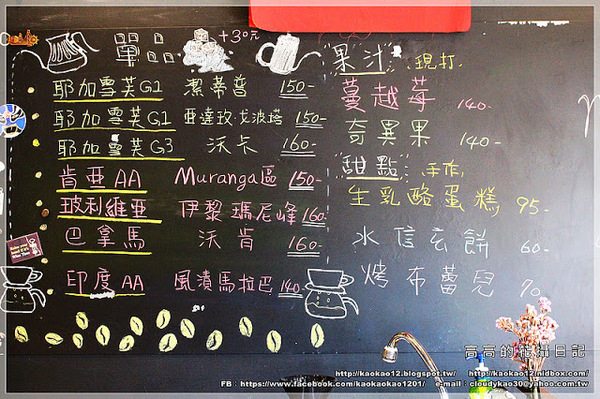 單品 +30元
耶加雪芙G1 潔蒂普 150-
耶加雪芙G1 亞達玫·戈波塔 150-
耶加雪芙G3 沃卡 160-
肯亞AA Muranga區 150-
玻利維亞 伊黎瑪尼峰 160-
巴拿馬 沃肯 160-
印度AA 風漬馬拉巴 140-
果汁 現打
蔓越莓 140-
奇異果 140-
甜點 手作
生乳酪蛋糕 95-
水信玄餅 60-
烤布蕾兒 70
高高的花攝日記
http://kaokao12.blogspot.tw/ http://kaokao12.nidbox.com/
FB：https://www.facebook.com/kaokaokao1201/ e-mail：cloudykao30@yahoo.com.tw